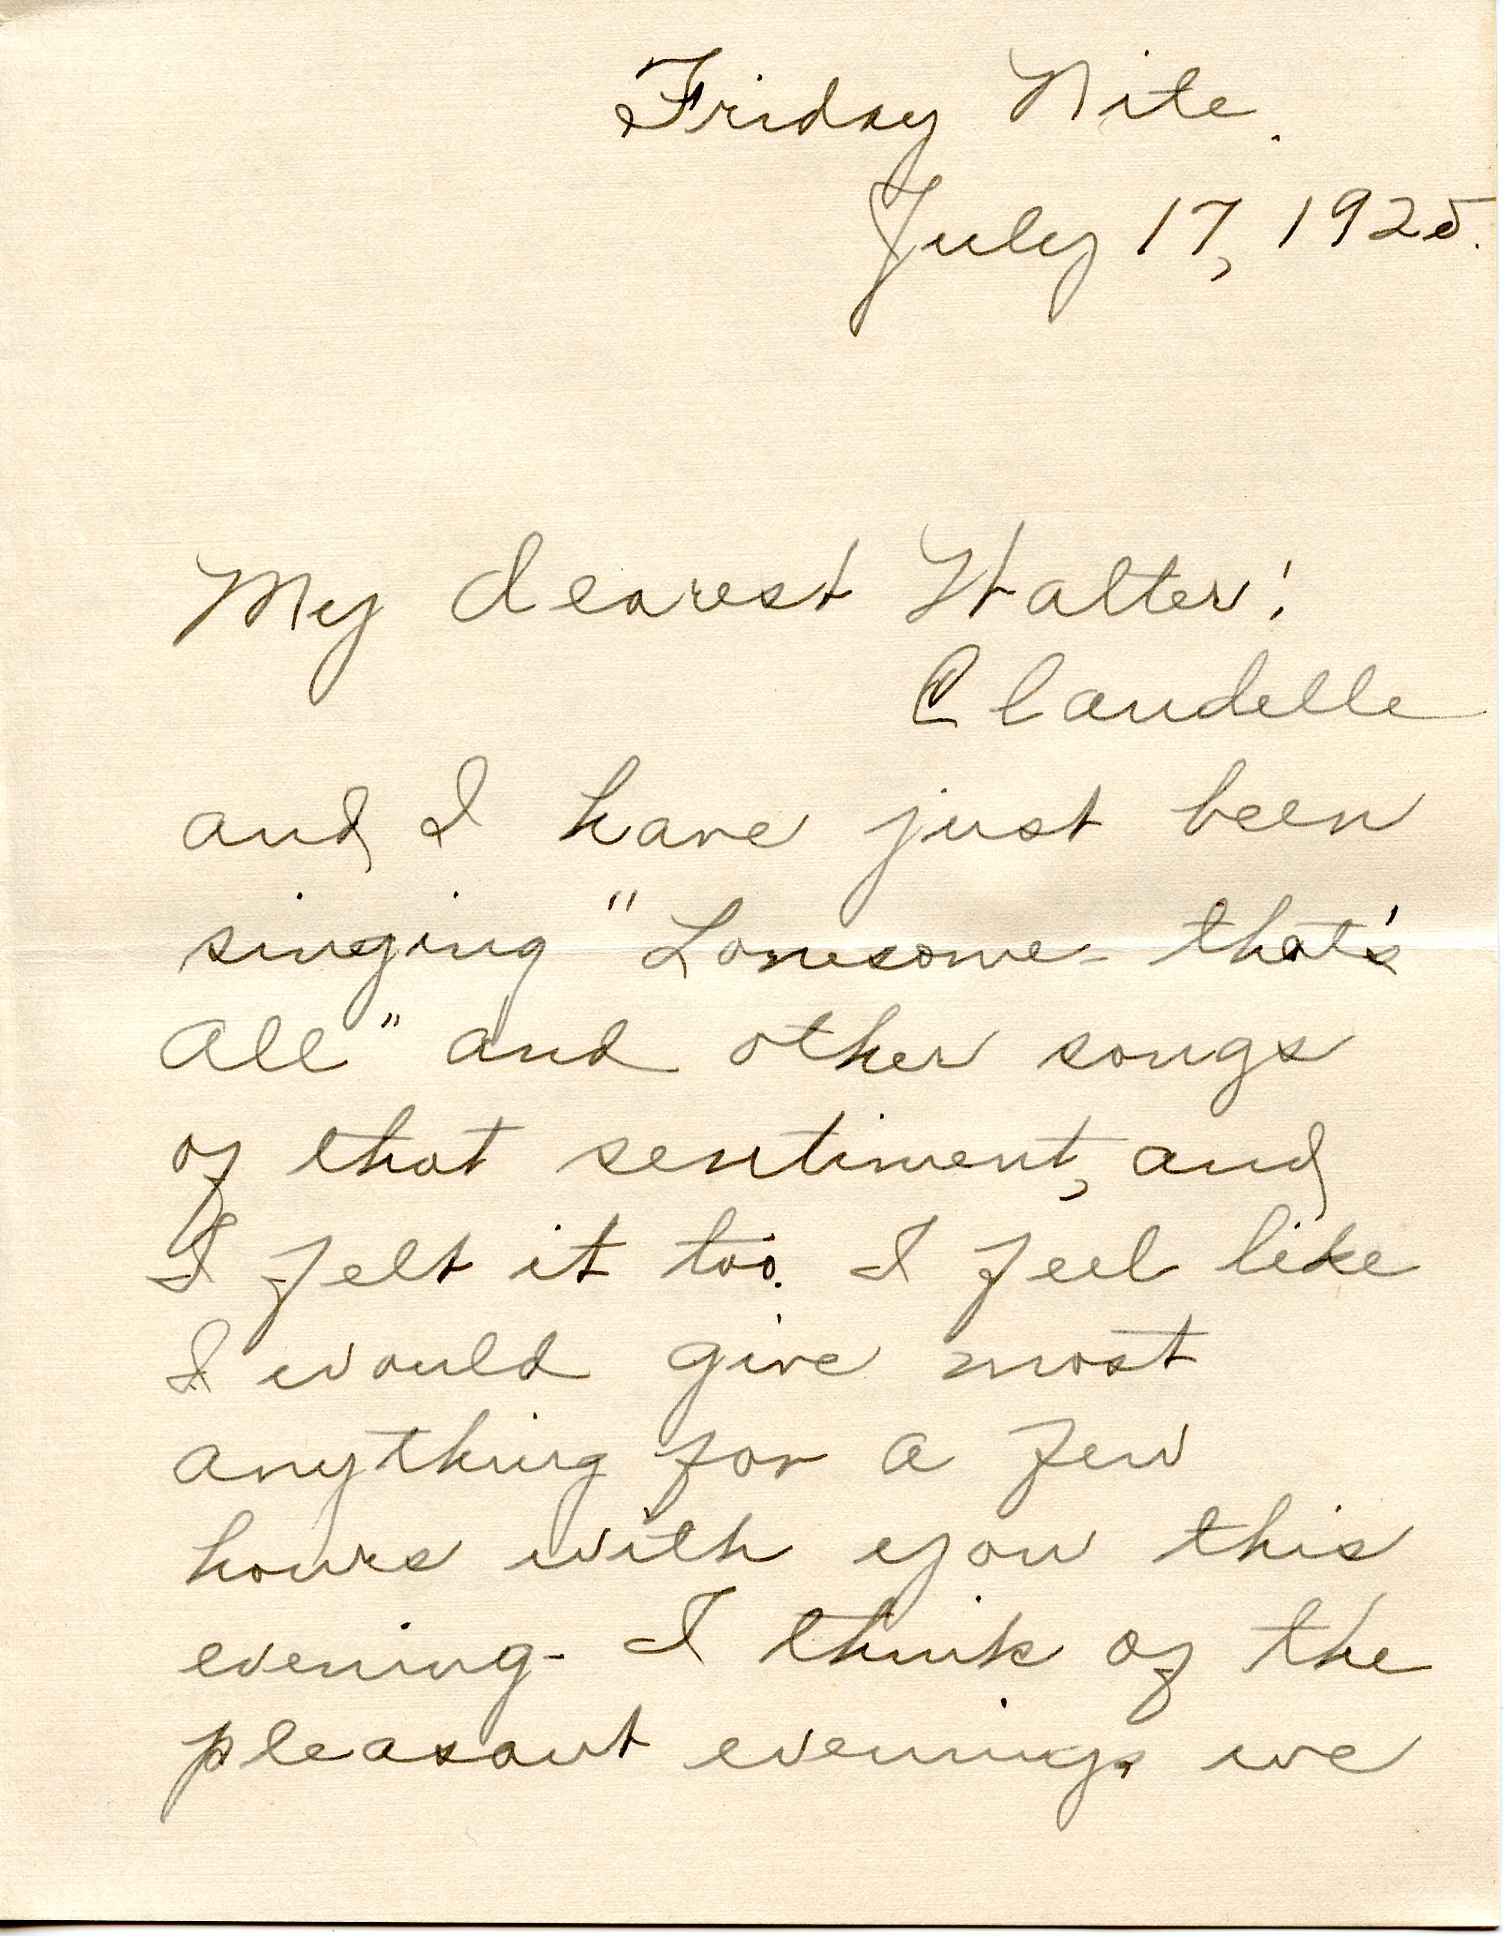 Friday Nite.
July 17, 1925.
My dearest Walter:
Claudelle
and I have just been
singing "Lonesome - that's
All" and other songs
of that sentiment, and
I felt it too. I feel like
I would give most
anything for a few
hours with you this
evening - I think of the
pleasant evenings we